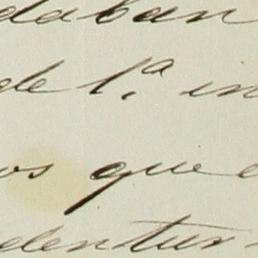 daban
de 1.ª in
os que
dentur